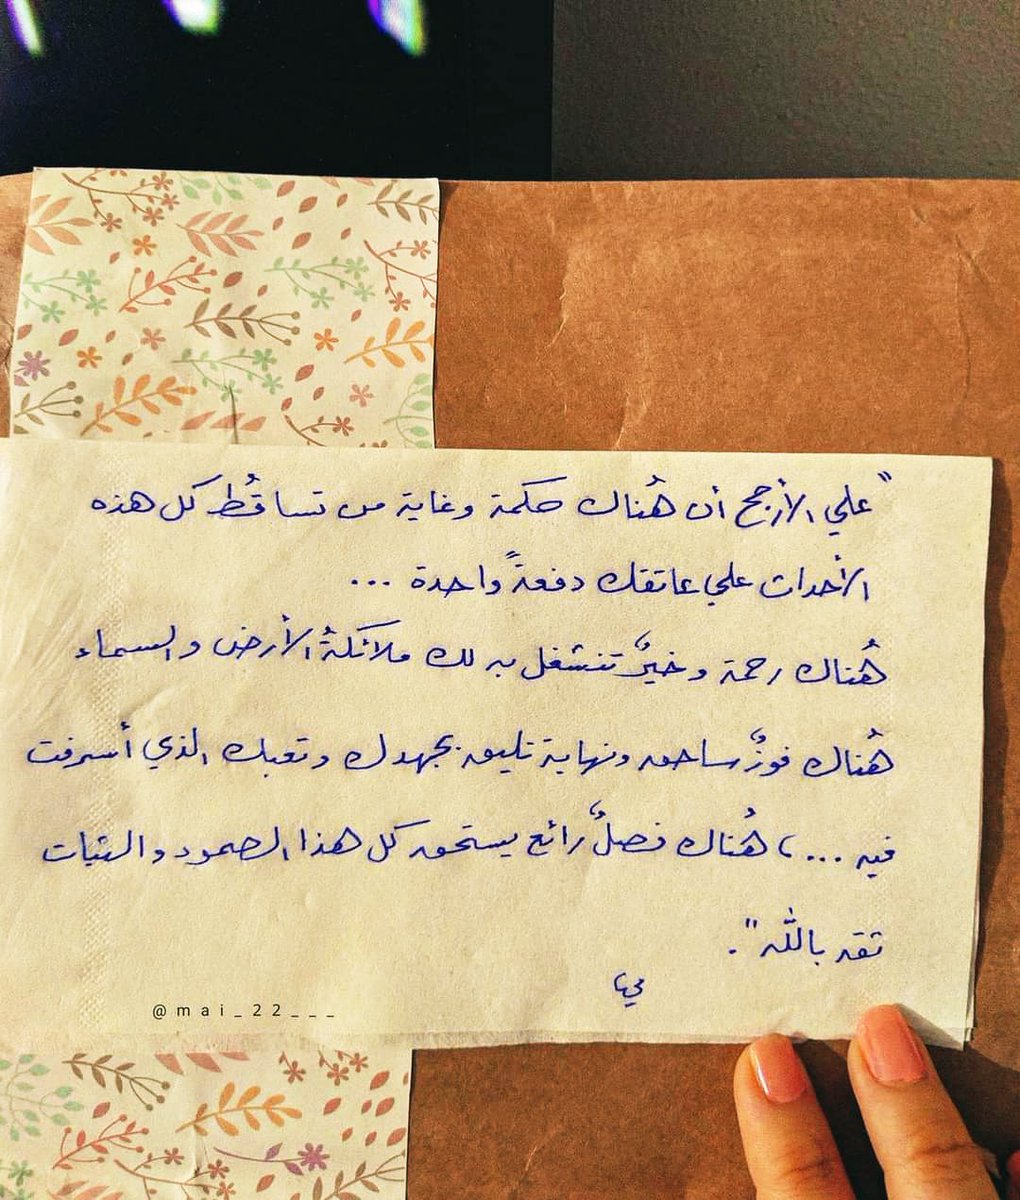 "علي الأرجح أن هُناك حكمة وغاية من تساقُط كل هذه
الأحداث علي عاتقك دفعةً واحدة ...
هُناك رحمة وخيرٌ تنشغل به لك ملائكةُ الأرض والسماء
هُناك فوزٌ ساحق ونهاية تليق بجهدك وتعبك الذي أسرفت
فيه ...، هُناك فصلٌ رائع يستحق كل هذا الصمود والثبات
ثق بالله".
مي
@mai_22___